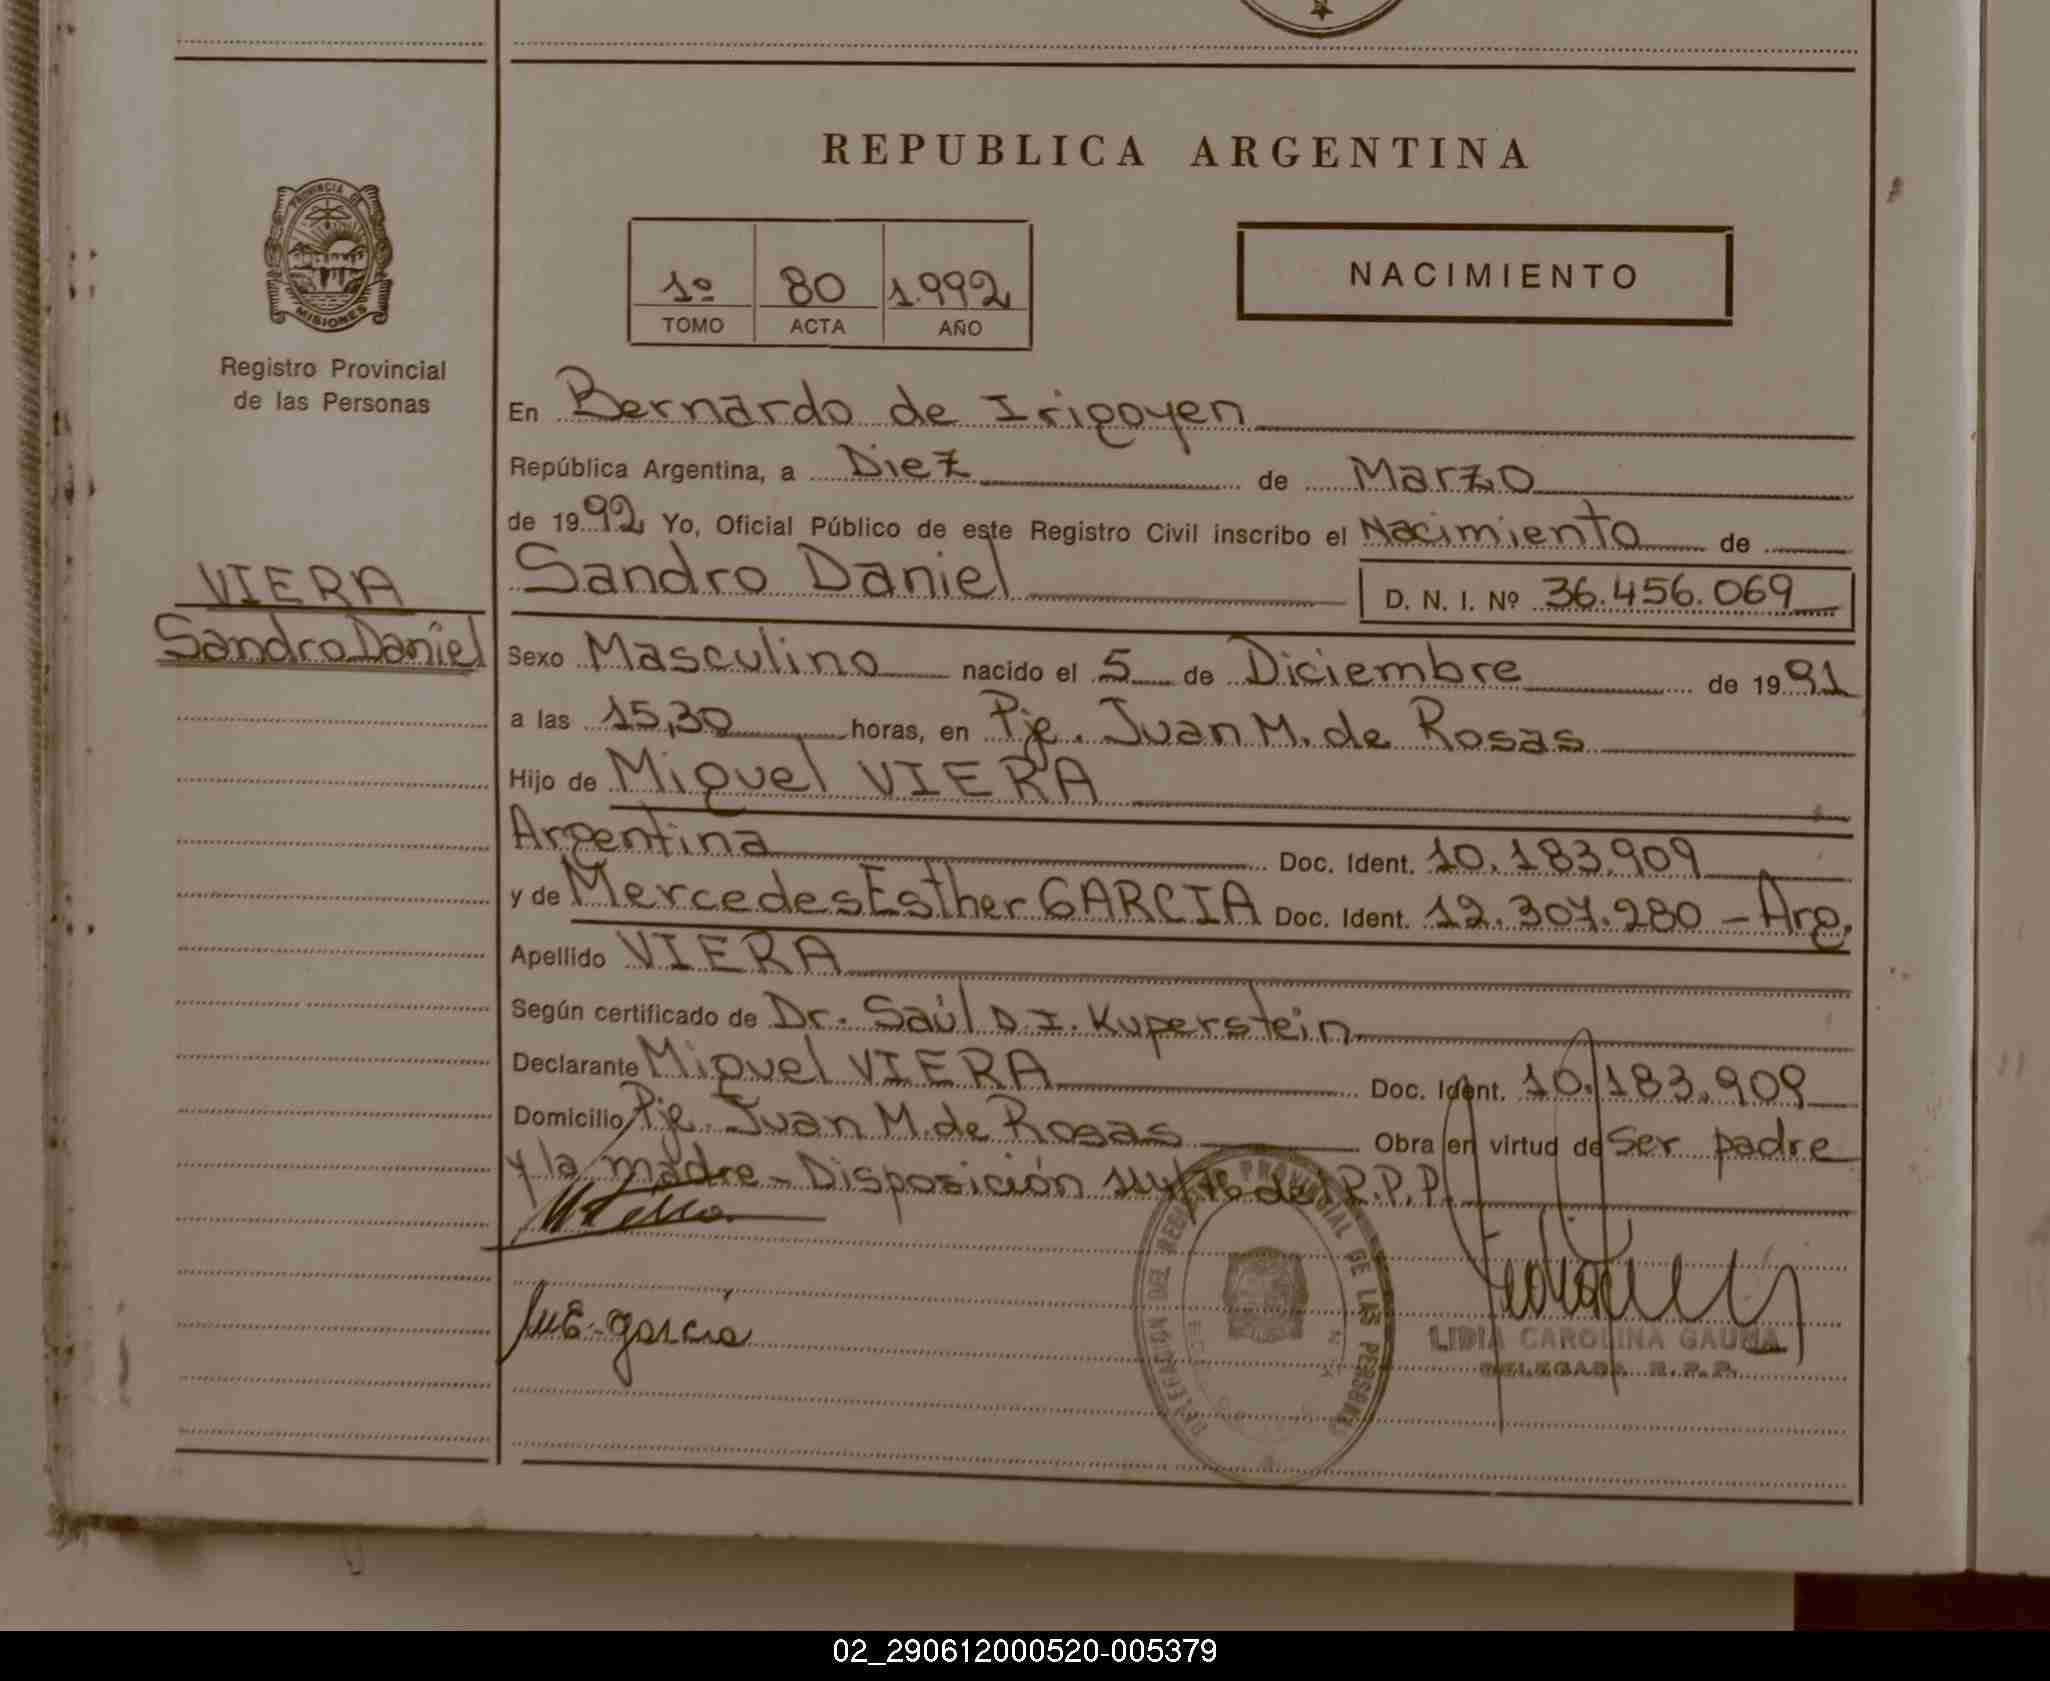 REPUBLICA ARGENTINA
PROVINCIA DE
MISIONES
Registro Provincial
de las Personas
1º 80 1.992
TOMO ACTA AÑO
NACIMIENTO
En Bernardo de Irigoyen
República Argentina, a Diez de Marzo
de 1992 Yo, Oficial Público de este Registro Civil inscribo el Nacimiento de
Sandro Daniel D. N. I. Nº 36.456.069
VIERA
Sandro Daniel
Sexo Masculino nacido el 5 de Diciembre de 1991
a las 15,30 horas, en Pje. Juan M. de Rosas
Hijo de Miguel VIERA
Argentina Doc. Ident. 10.183.909
y de Mercedes Esther GARCIA Doc. Ident. 12.307.280 - Arg.
Apellido VIERA
Según certificado de Dr. Saúl D. I. Kuperstein
Declarante Miguel VIERA Doc. Ident. 10.183.909
Domicilio Pje. Juan M. de Rosas Obra en virtud de ser padre
y la madre - Disposición del R.P.P.
M E garcia
DELEGACIÓN DEL REGISTRO PROVINCIAL DE LAS PERSONAS
LIDIA CAROLINA GAUNA
DELEGADA R.P.P.
02_290612000520-005379